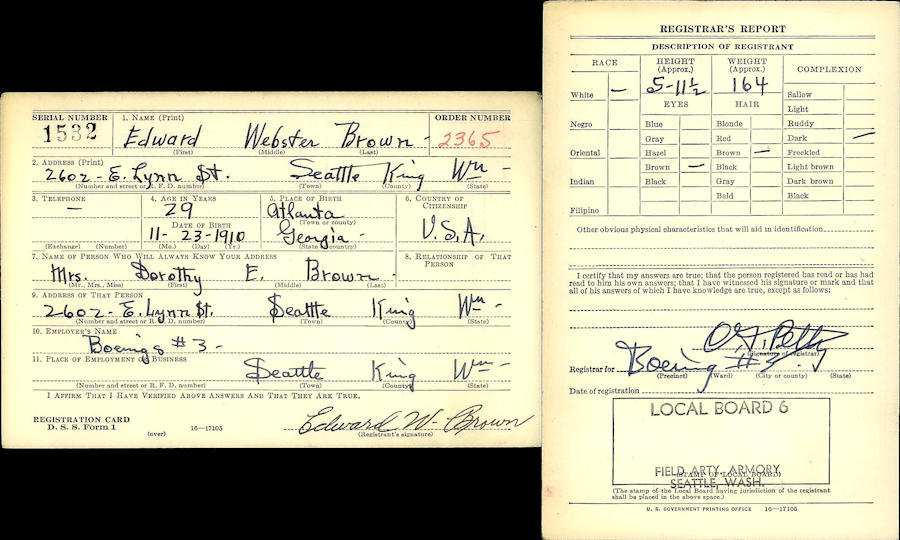 SERIAL NUMBER
1532
1. NAME (Print)
Edward Webster Brown -
(First) (Middle) (Last)
ORDER NUMBER
2365
2. ADDRESS (Print)
2602 - E. Lynn St. Seattle King Wn -
(Number and street or R. F. D. number) (Town) (County) (State)
3. TELEPHONE
—
(Exchange) (Number)
4. AGE IN YEARS
29
DATE OF BIRTH
11- 23-1910
(Mo.) (Day) (Yr.)
5. PLACE OF BIRTH
Atlanta
(Town or county)
Georgia -
(State or country)
6. COUNTRY OF
CITIZENSHIP
U.S.A.
7. NAME OF PERSON WHO WILL ALWAYS KNOW YOUR ADDRESS
Mrs. Dorothy E. Brown -
(Mr., Mrs., Miss) (First) (Middle) (Last)
8. RELATIONSHIP OF THAT
PERSON
9. ADDRESS OF THAT PERSON
2602- E. Lynn St. Seattle King Wn -
(Number and street or R. F. D. number) (Town) (County) (State)
10. EMPLOYER'S NAME
Boeings #3 -
11. PLACE OF EMPLOYMENT OR BUSINESS
Seattle King Wn -
(Number and street or R. F. D. number) (Town) (County) (State)
I AFFIRM THAT I HAVE VERIFIED ABOVE ANSWERS AND THAT THEY ARE TRUE.
REGISTRATION CARD
D. S. S. Form 1
(over) 16—17105
Edward W. Brown
(Registrant's signature)
REGISTRAR'S REPORT
DESCRIPTION OF REGISTRANT
RACE
White —
Negro
Oriental
Indian
Filipino
HEIGHT
(Approx.)
5-11½
WEIGHT
(Approx.)
164
EYES
Blue
Gray
Hazel
Brown —
Black
HAIR
Blonde
Red
Brown —
Black
Gray
Bald
COMPLEXION
Sallow
Light
Ruddy
Dark —
Freckled
Light brown
Dark brown
Black
Other obvious physical characteristics that will aid in identification
I certify that my answers are true; that the person registered has read or has had
read to him his own answers; that I have witnessed his signature or mark and that
all of his answers of which I have knowledge are true, except as follows:
(Signature of registrar)
Registrar for Boeing #3
(Precinct) (Ward) (City or county) (State)
Date of registration
LOCAL BOARD 6
FIELD ARTY. ARMORY
(STAMP OF LOCAL BOARD)
SEATTLE, WASH.
(The stamp of the Local Board having jurisdiction of the registrant
shall be placed in the above space.)
U. S. GOVERNMENT PRINTING OFFICE 16—17105